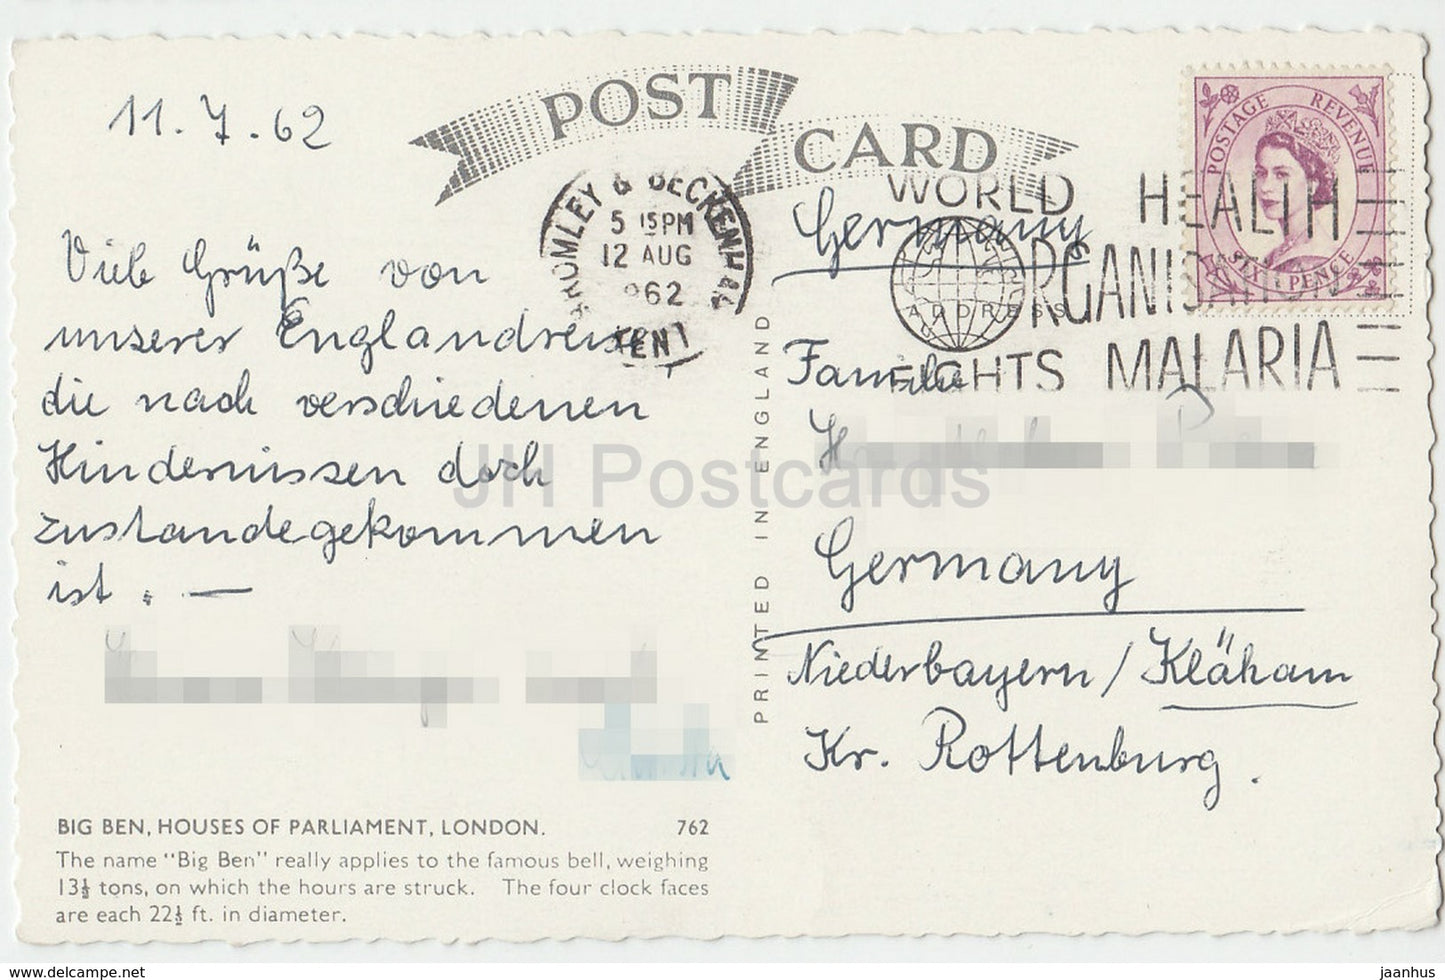 POST CARD
11.7.62
POSTAGE REVENUE
SIX PENCE
BROMLEY & BECKENHAM
5 15PM
12 AUG
1962
KENT
WORLD HEALTH
ORGANISATION
FIGHTS MALARIA
ADDRESS
Viele Grüße von
unserer Englandreise
die nach verschiedenen
Hindernissen doch
zustandegekommen
ist . —
Germany
Familie
Germany
Niederbayern / Kläham
Kr. Rottenburg .
PRINTED IN ENGLAND
JH Postcards
BIG BEN, HOUSES OF PARLIAMENT, LONDON. 762
The name "Big Ben" really applies to the famous bell, weighing
13½ tons, on which the hours are struck. The four clock faces
are each 22½ ft. in diameter.
www.delcampe.net
jaanhus